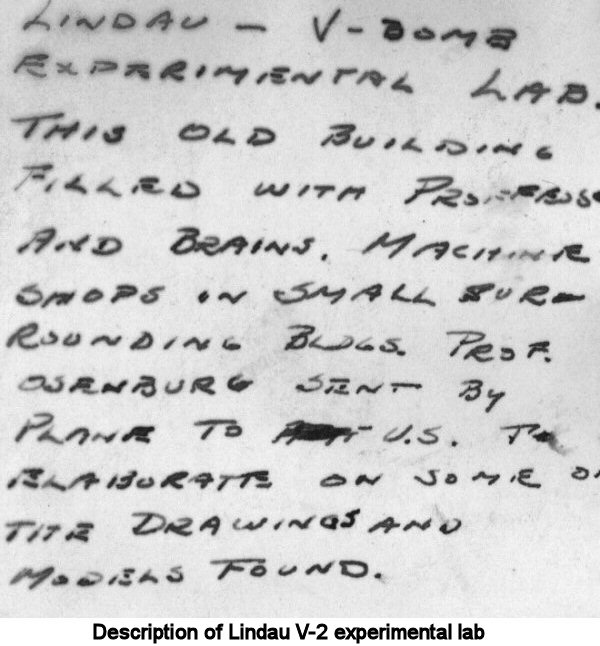 LINDAU — V-BOMB
EXPERIMENTAL LAB.
THIS OLD BUILDING
FILLED WITH PROFESS
AND BRAINS. MACHINE
SHOPS IN SMALL SUR-
ROUNDING BLDGS. PROF.
OSENBURG SENT BY
PLANE TO U.S. TO
ELABORATE ON SOME O
THE DRAWINGS AND
MODELS FOUND.
Description of Lindau V-2 experimental lab